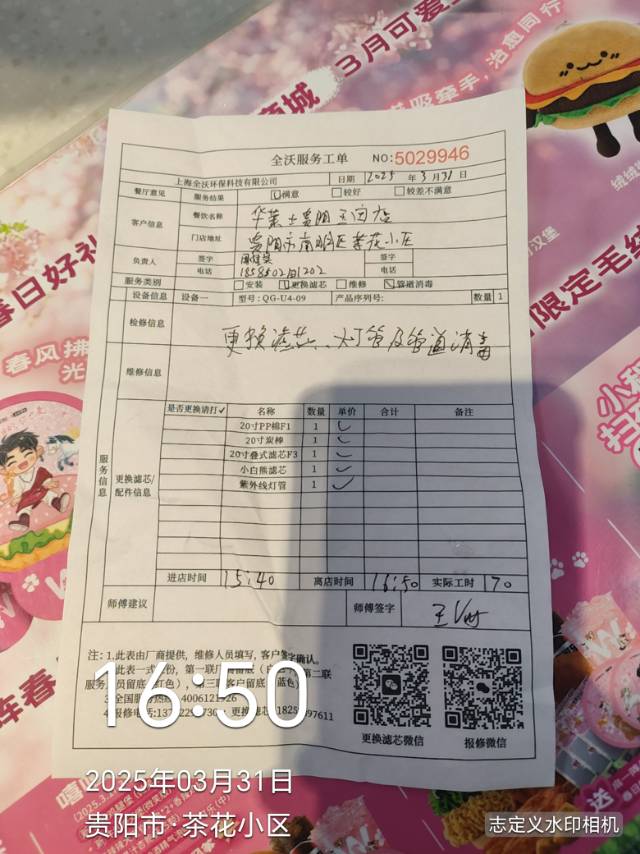 商城
3月可爱
治愈同行
吸牵手,
春日好礼
春风拂
光
限定毛绒
汉堡
小程
扫
阵春
送
全沃服务工单 NO:5029946
上海全沃环保科技有限公司 日期 2025 年 3月31日
餐厅意见 服务结果 满意 较好 较差不满意
客户信息 餐饮名称 华莱士贵阳
门店地址 贵阳市南明区茶花小区
负责人 签字 签字
电话 电话
服务类别 安装 更换滤芯 维修 管道消毒
设备信息 设备一 型号:QG-U4-09 产品序列号: 数量 1
检修信息 更换滤芯、灯管及管道消毒
维修信息
服务信息 更换滤芯/配件信息
是否更换请打✓ 名称 数量 单价 合计 备注
20寸PP棉F1 1 ✓
20寸炭棒 1 ✓
20寸叠式滤芯F3 1 ✓
小白熊滤芯 1 ✓
紫外线灯管 1 ✓
进店时间 15:40 离店时间 16:50 实际工时 70
师傅建议 师傅签字
注:1.此表由厂商提供,维修人员填写,客户签字确认。
服务 4006121926
更换滤芯微信 报修微信
16:50
2025年03月31日
贵阳市·茶花小区
志定义水印相机